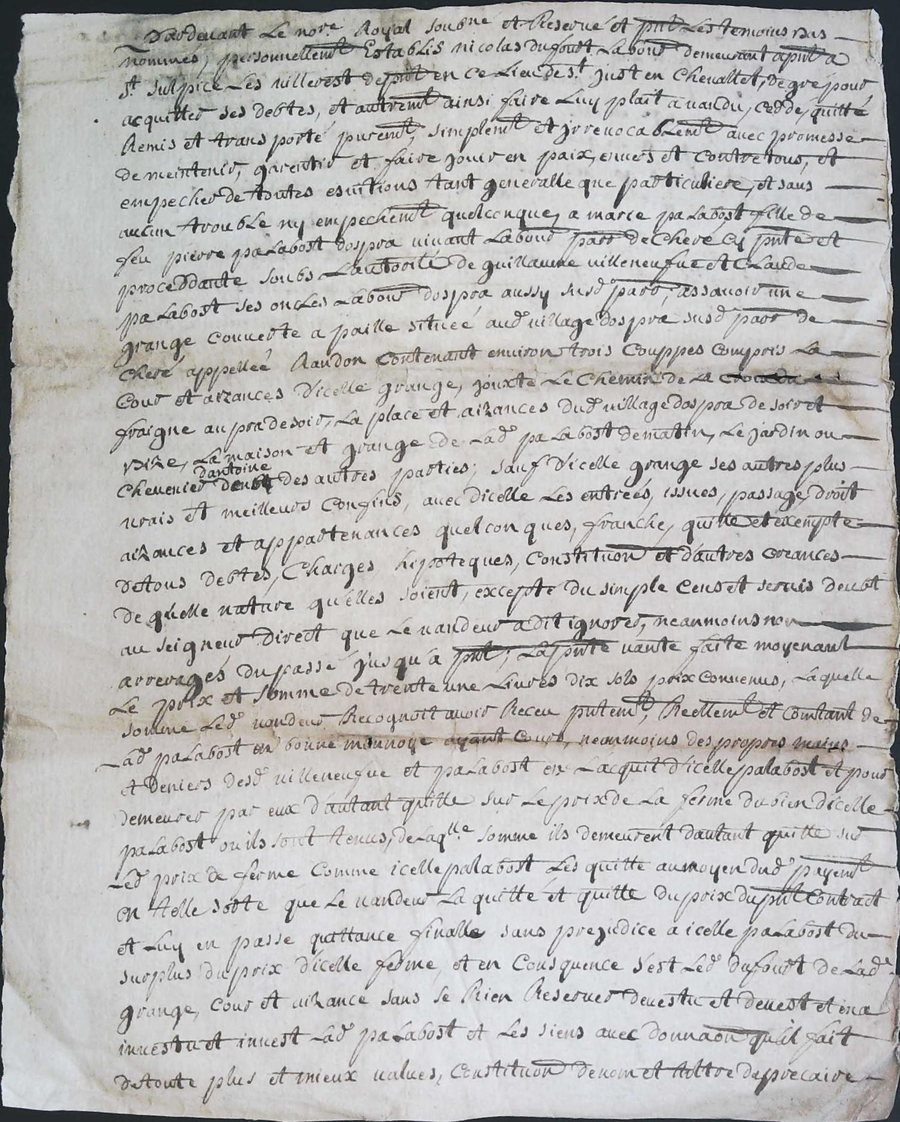 Pardevant Le nore Royal soubne et Reservé et pnt Les temoins bas
nommés, personnellemt Establis nicolas dufourt Labour demeurant apnt a
st sulpice Les villerest depnt en ce Lieu de st just en chevallet, de gré pour
acquitter ses debtes, et autremt ainsi faire Luy plait a vandu, ceddé, quitté
Remis et transporté puremt, simplemt et jrrevocablemt avec promesse
de meintenir, garentir et faire jouir en paix, envers et contre tous, et
empecher de toutes evitions tant generalle que particuliere, et sans
aucun trouble ny empechemt quelconque, a marie paLabost fille de
feu pierre paLabost dospra vivant Labour parr de Cheré cy pnte et
proceddante soubs Lautorité de guillaume villeneufve et CLaude
paLabost ses oncLes Labour dospra aussy susd parr, assavoir une
grange couverte a paille situeé aud village dospra susd parr de
Cheré appelleé Randon Contenant environ trois Couppes Compris La
Cour et aizances d'icelle grange, jouxte Le Chemin de La
fraigne au pra de soir, La place et aizances dud village dospra de soir et
vize, La maison et grange de Lad paLabost de matin, Le jardin ou
Chevenier d'antoine des autres parties, sauf d'icelle grange ses autres plus
vrais et meilleurs Confins, avec dicelle Les entreés, issues, passage, droit
aizances et appartenances quelconques, franche, quitte et exempte
de tous debtes, Charges hipoteques, Constitution et d'autres Creances
de quelle nature qu'elles soient, excepte du simple Cens et servis deubt
au seigneur Direct que Le vandeur a dit ignorer, neanmoins non
arreragés du passé jusqu'a pnt; La pnte vante faite moyenant
Le prix et somme de trente une Livres dix sols prix Convenus, Laquelle
somme Led vandeur Recognoit avoir Receu pntemt, Reellemt et Comtant de
Lad paLabost en bonne monnoye ayant Cour, neanmoins des propres mains
et Deniers desd villeneufve et paLabost en Lacquit d'icelle palabost et pour
demeurer par eux d'autant quitte sur Le prix de La ferme du bien dicelle
paLabost ou ils sont tenus, de Laqlle somme ils demeurent dautant quitte sur
Led prix de ferme Comme icelle palabost Les quitte au moyen dud payemt
en telle sorte que Le vandeur La quitté et quitte du prix du pnt Contract
et Luy en passe quittance finalle sans prejudice a icelle paLabost du
surplus du prix d'icelle ferme, et en Consquence s'est Led dufourt de Lad
grange, Cour et aizance sans se Rien Reserver devestu et devest et en a
investu et invest Lad paLabost et Les siens avec donnaon qu'il fait
de toute plus et mieux values, Constitution de nom et tiltre de precaire